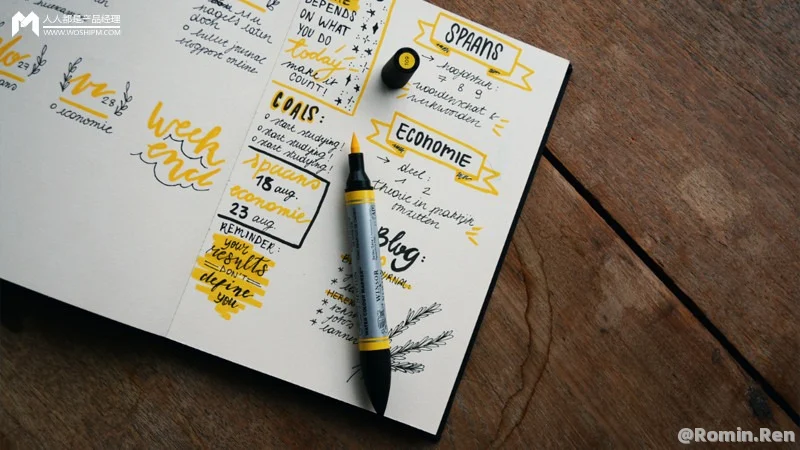 人人都是产品经理
WWW.WOSHIPM.COM
nagels laten
doen
bullet journal
blogpost online
28
o economie
week
end
DEPENDS
ON WHAT
YOU DO
today
make it
COUNT!
GOALS:
o start studying!
o start studying!
o start studying!
spaans
18 aug.
economie
23 aug.
REMINDER:
your
results
DON'T
define
you
SPAANS
→ hoofdstuk:
7 8 9
→ woordenschat &
werkwoorden
ECONOMIE
→ deel:
1 2
theorie in praktijk
omzetten
Blog:
WINSOR
@Romin.Ren